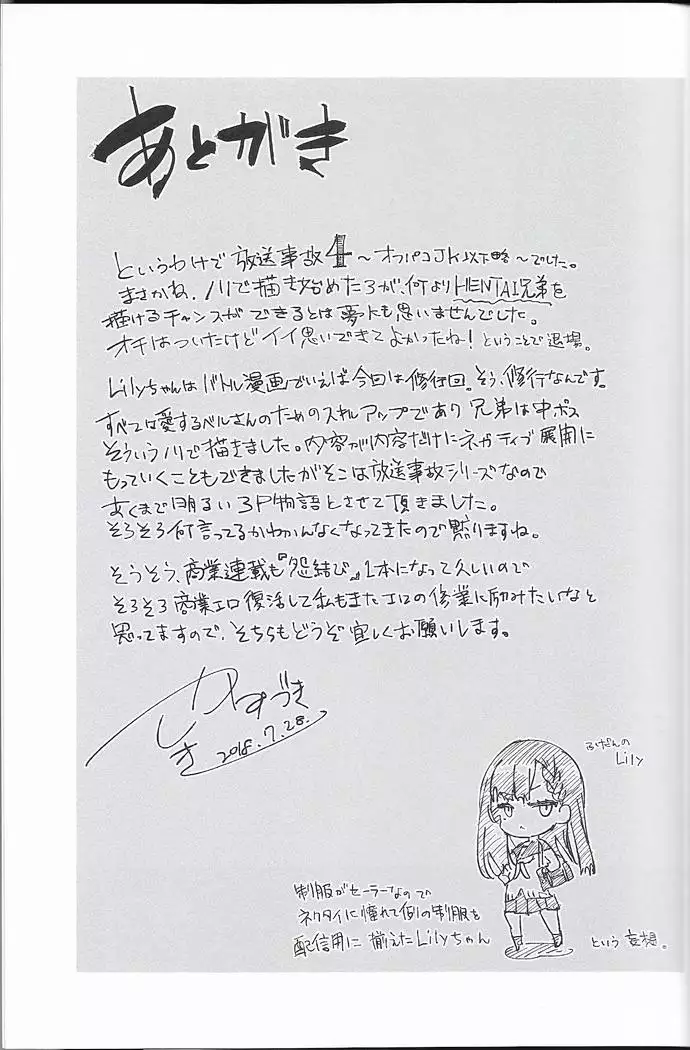 あとがき
というわけで放送事故4〜オフパコJK以下略〜でした。
まさかね、ノリで描き始めたろが、何よりHENTAI兄弟を
描けるチャンスができるとは夢にも思いませんでした。
オチはついたけどイイ思いできてよかったね！ということで退場。
Lilyちゃんはバトル漫画でいえば今回は修行回。そう、修行なんです。
すべては愛するベルさんのためのスキルアップであり兄弟は中ボス
そういうノリで描きました。内容が内容だけにネガティブ展開に
もっていくこともできましたがそこは放送事故シリーズなので
あくまで明るい3P物語とさせて頂きました。
そろそろ何言ってるかわかんなくなってきたので黙りますね。
そうそう、商業連載も『怨結び』1本になって久しいので
そろそろ商業エロ復活して私もまたエロの修業に励みたいなと
思ってますので、そちらもどうぞ宜しくお願いします。
かづき
2018.7.28.
ふだんの
Lily
制服がセーラーなので
ネクタイに憧れて別の制服を
配信用に揃えたLilyちゃん
という妄想。